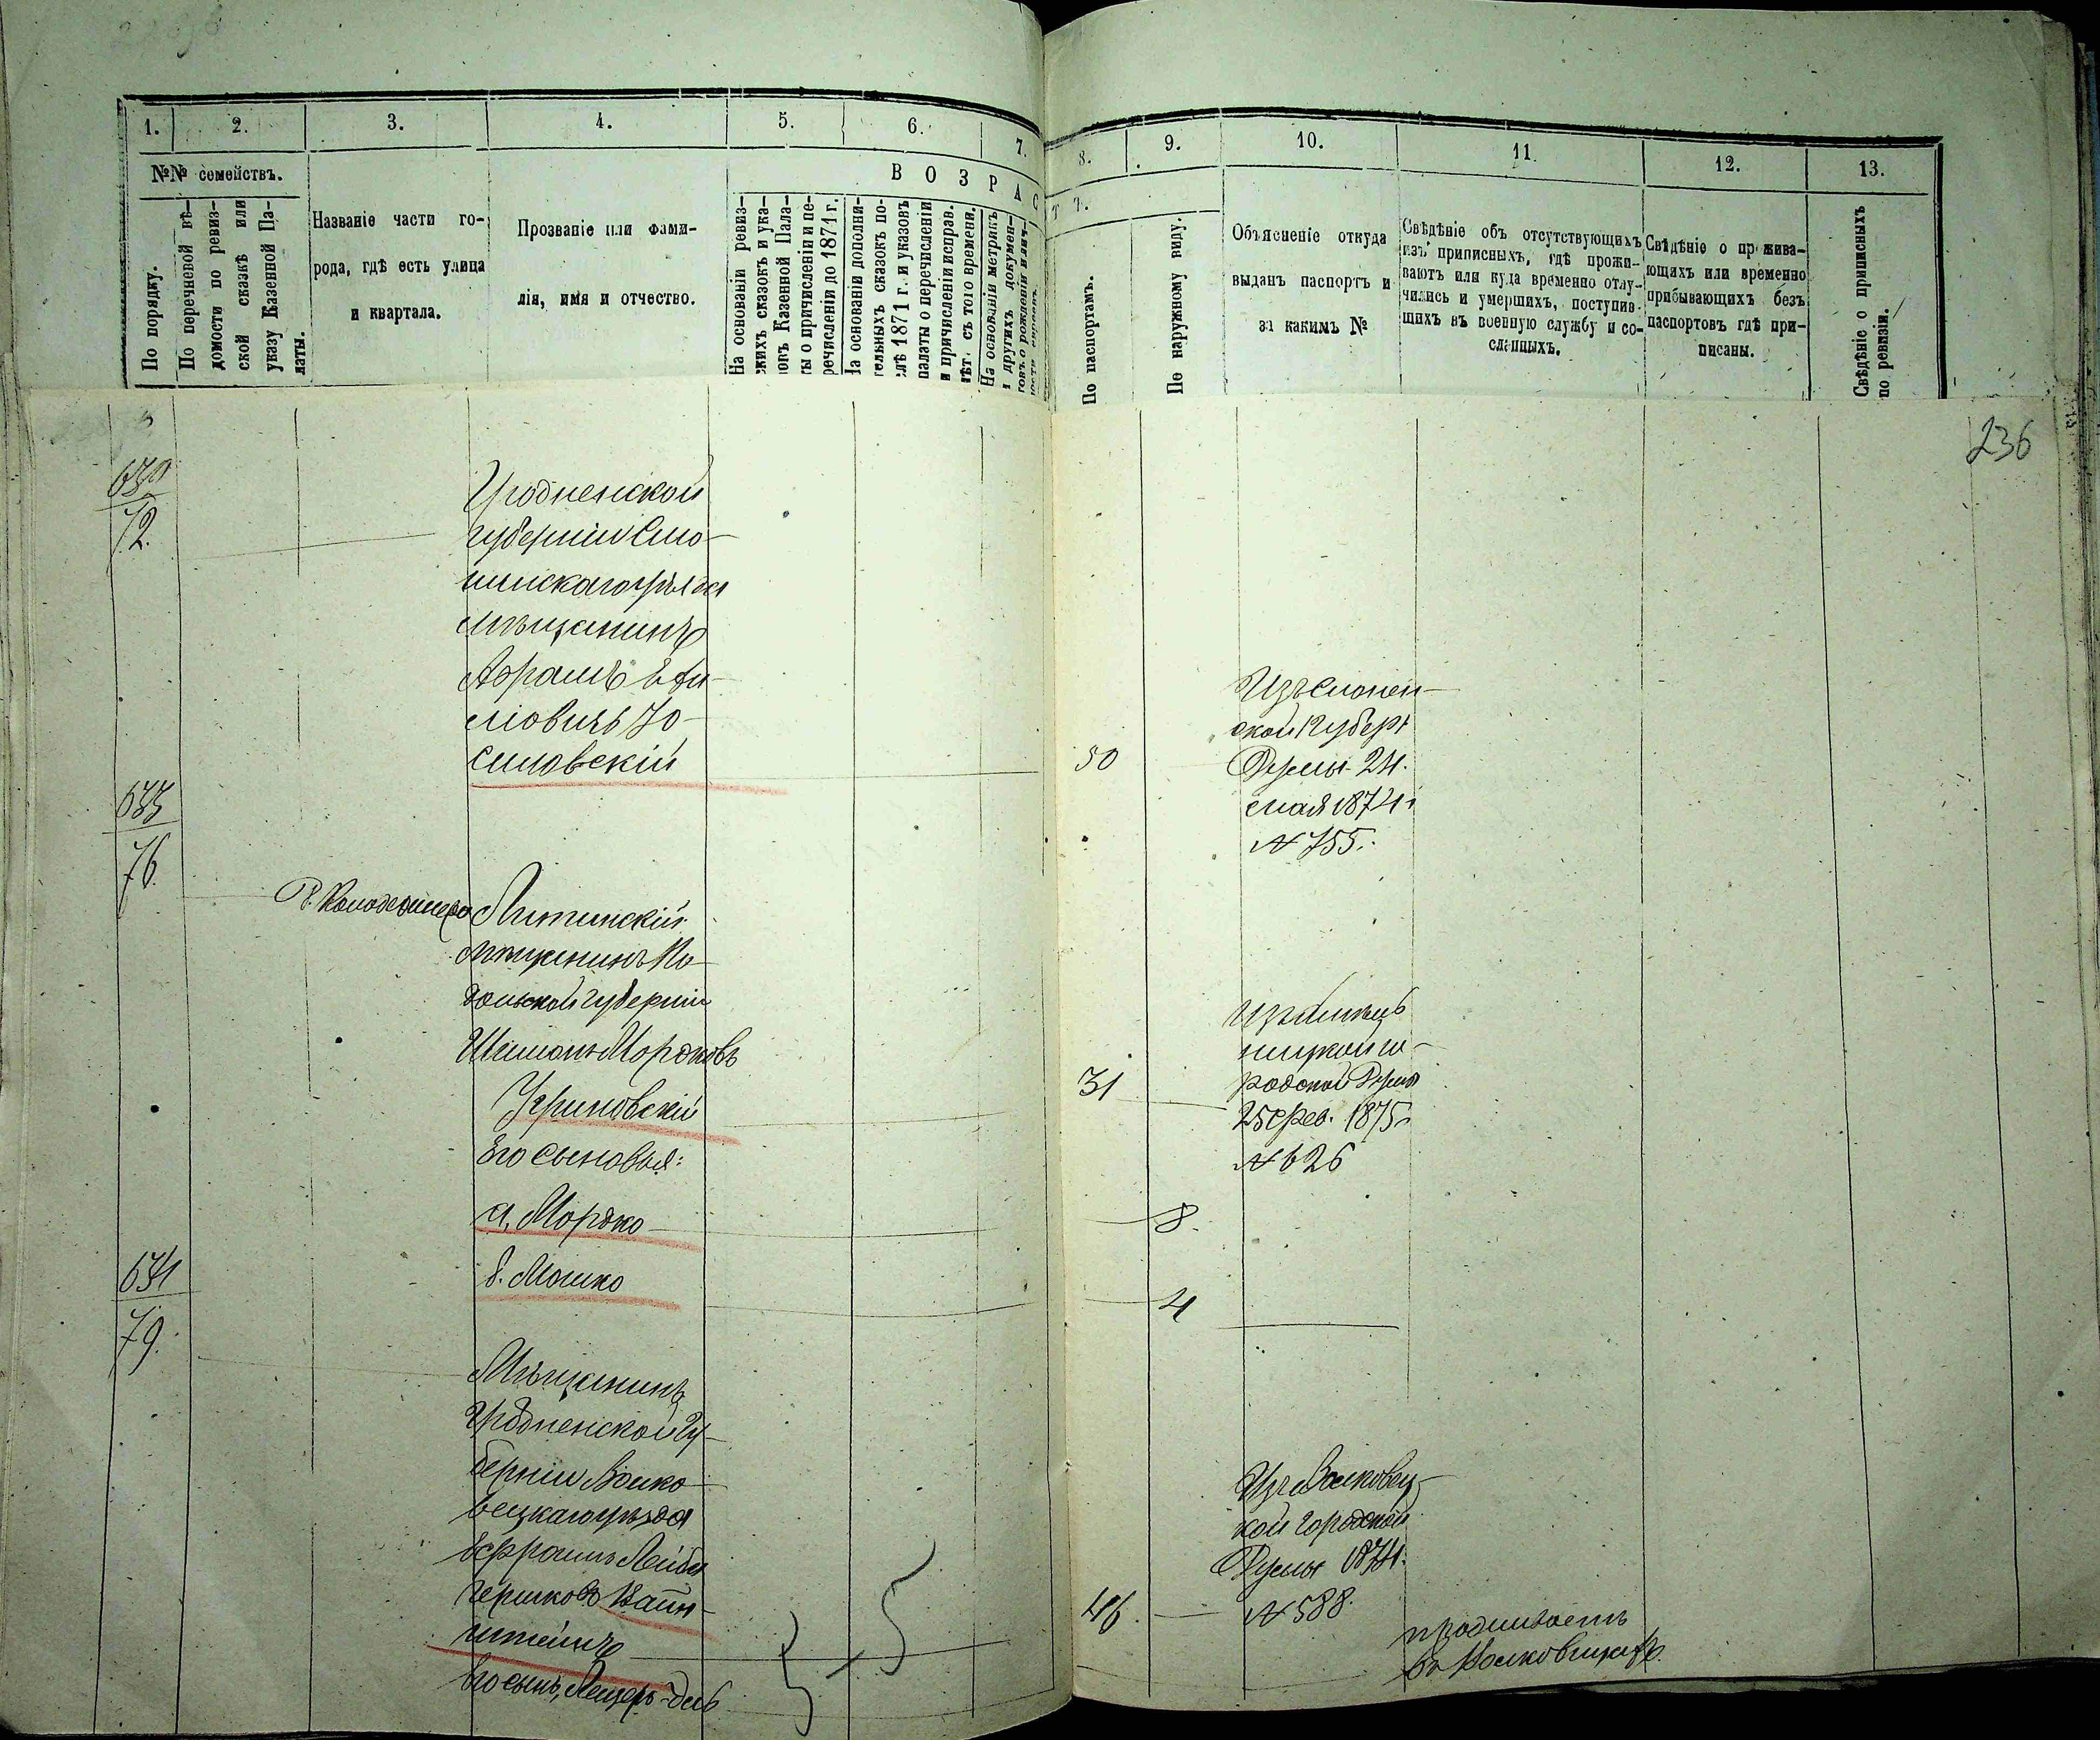 1.
2.
3.
4.
5.
6.
7.
8.
9.
10.
11.
12.
13.
№№ семействъ.
По порядку.
По перечневой вѣ-
домости по ревиз-
ской сказкѣ или
указу Казенной Па-
латы.
Названіе части го-
рода, гдѣ есть улица
и квартала.
Прозваніе или фами-
лія, имя и отчество.
ВОЗРАС
Т Ъ.
На основаніи ревиз-
скихъ сказокъ и ука-
зовъ Казенной Пала-
ты о причисленіи и пе-
речисленіи до 1871 г.
На основаніи дополни-
тельныхъ сказокъ по-
слѣ 1871 г. и указовъ
палаты о перечисленіи
и причисленіи исправ.
лѣт. съ того времени.
На основаніи метрикъ
и другихъ докумен-
товъ о рожденіи
По паспортамъ.
По наружному виду.
Объясненіе откуда
выданъ паспортъ и
за какимъ №
Свѣдѣніе объ отсутствующихъ
изъ приписныхъ, гдѣ прожи-
ваютъ или куда временно отлу-
чились и умершихъ, поступив-
шихъ въ военную службу и со-
сланныхъ.
Свѣдѣніе о прожива-
ющихъ или временно
прибывающихъ безъ
паспортовъ гдѣ при-
писаны.
Свѣдѣніе о приписныхъ
по ревизіи.
236
72.
Гродненской
губерніи Сло-
нимскаго уѣзда
мѣщанинъ
Абрамъ
Юсиловскій
50
Думы 24.
мая 1874 г.
№ 755.
633
76.
Литинскій
мѣщанинъ По-
дольской губерніи
Шимонъ Мордковъ
Угриновскій
31
родской Думы
25 Фев. 1875 г.
№ 626
Его сыновья:
а, Мордко
8.
б. Мошко
4
634
79.
Мѣщанинъ
Гродненской Гу-
берніи Волко-
вецкаго уѣзда
Ефроимъ Лейба
Гершковъ Вайн-
штейнъ
46.
Изъ Волковец-
кой городской
Думы 1874 г.
№ 588.
проживаетъ
Его сынъ,